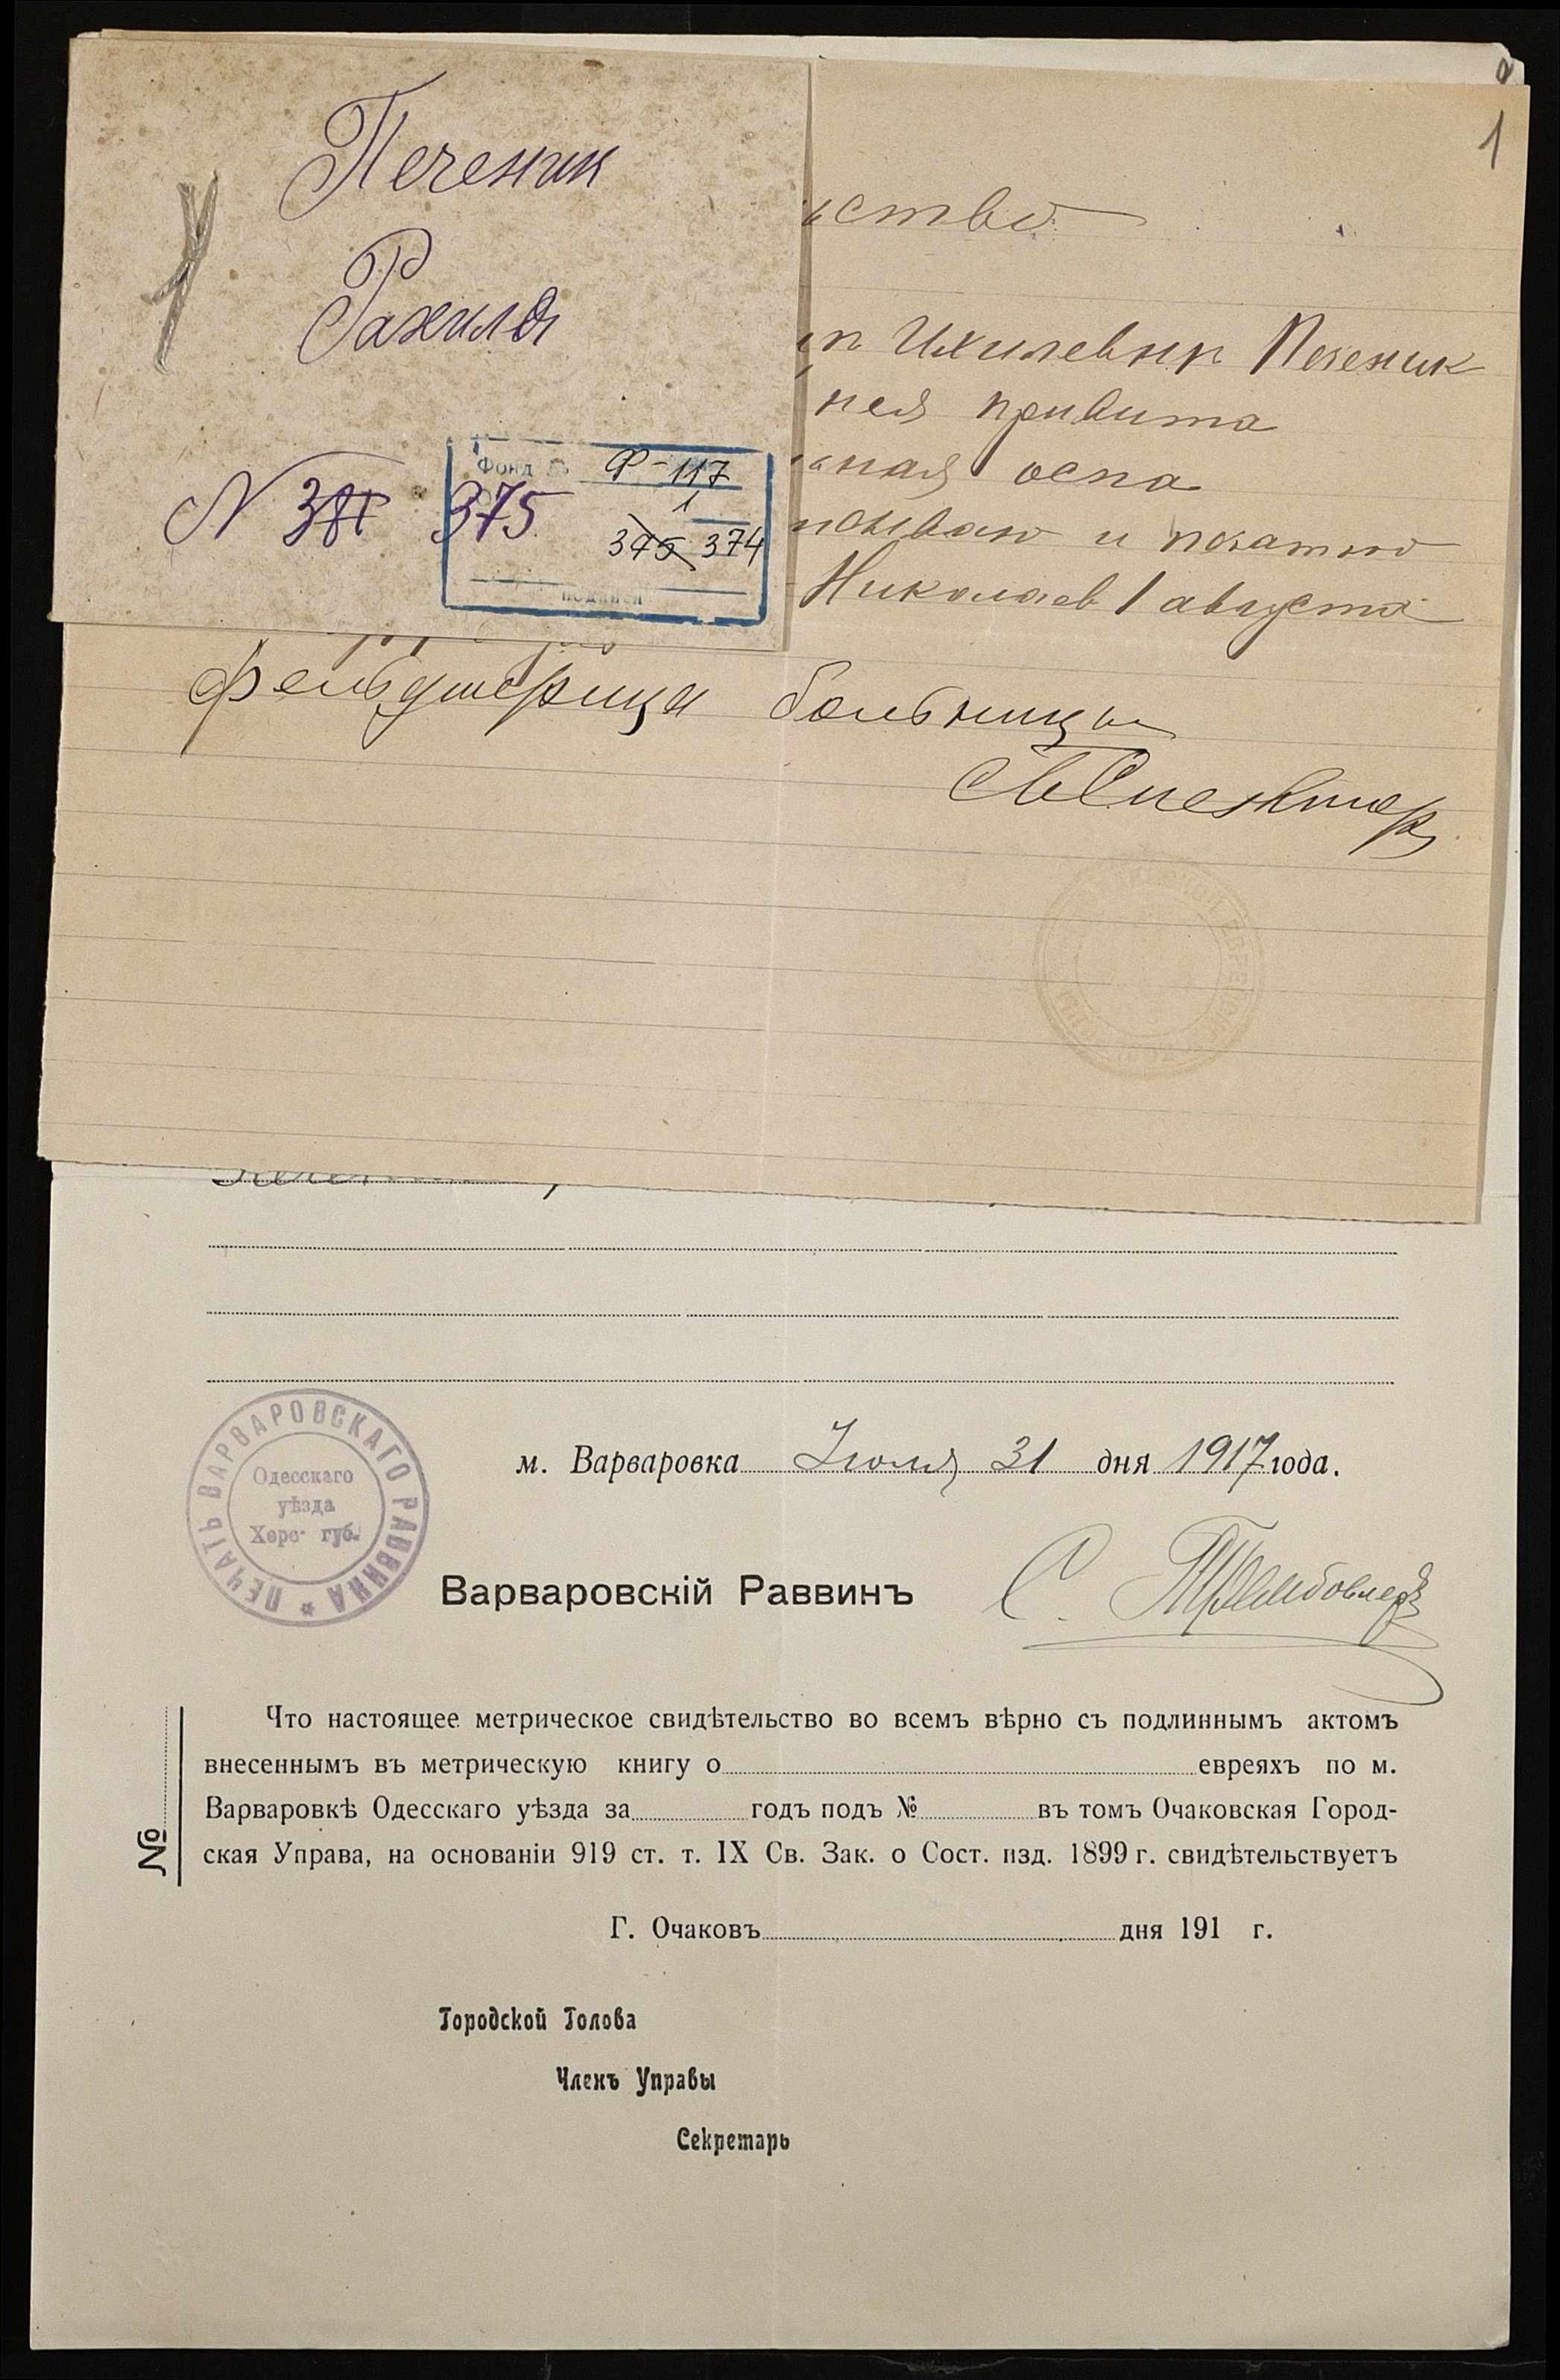 Печеник
Рахиля
N 375
Фонд
Ф-117
1
375 374
1
ство
Ихилевны Печеник
ней привита
ная оспа
и печатью
Николаев 1 августа
Фельдшерица больницы
м. Варваровка Июля 31 дня 1917 года.
ПЕЧАТЬ ВАРВАРОВСКАГО РАВВИНА *
Одесскаго
уѣзда
Херс. губ.
Варваровскій Раввинъ
С.
Что настоящее метрическое свидѣтельство во всемъ вѣрно съ подлиннымъ актомъ
внесеннымъ въ метрическую книгу о евреяхъ по м.
Варваровкѣ Одесскаго уѣзда за годъ подъ № въ томъ Очаковская Город-
ская Управа, на основаніи 919 ст. т. IX Св. Зак. о Сост. изд. 1899 г. свидѣтельствуетъ
№
Г. Очаковъ дня 191 г.
Городской Голова
Членъ Управы
Секретарь